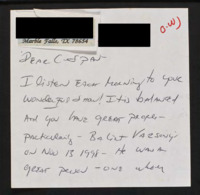 Marble Falls, TX 78654
Dear C-Span
I listen Every morning to your
wonderful show! It is balanced
And you have great people
particularly - Balint Vazsonyi
on Nov 13 1998 - He was a
great person - one whom